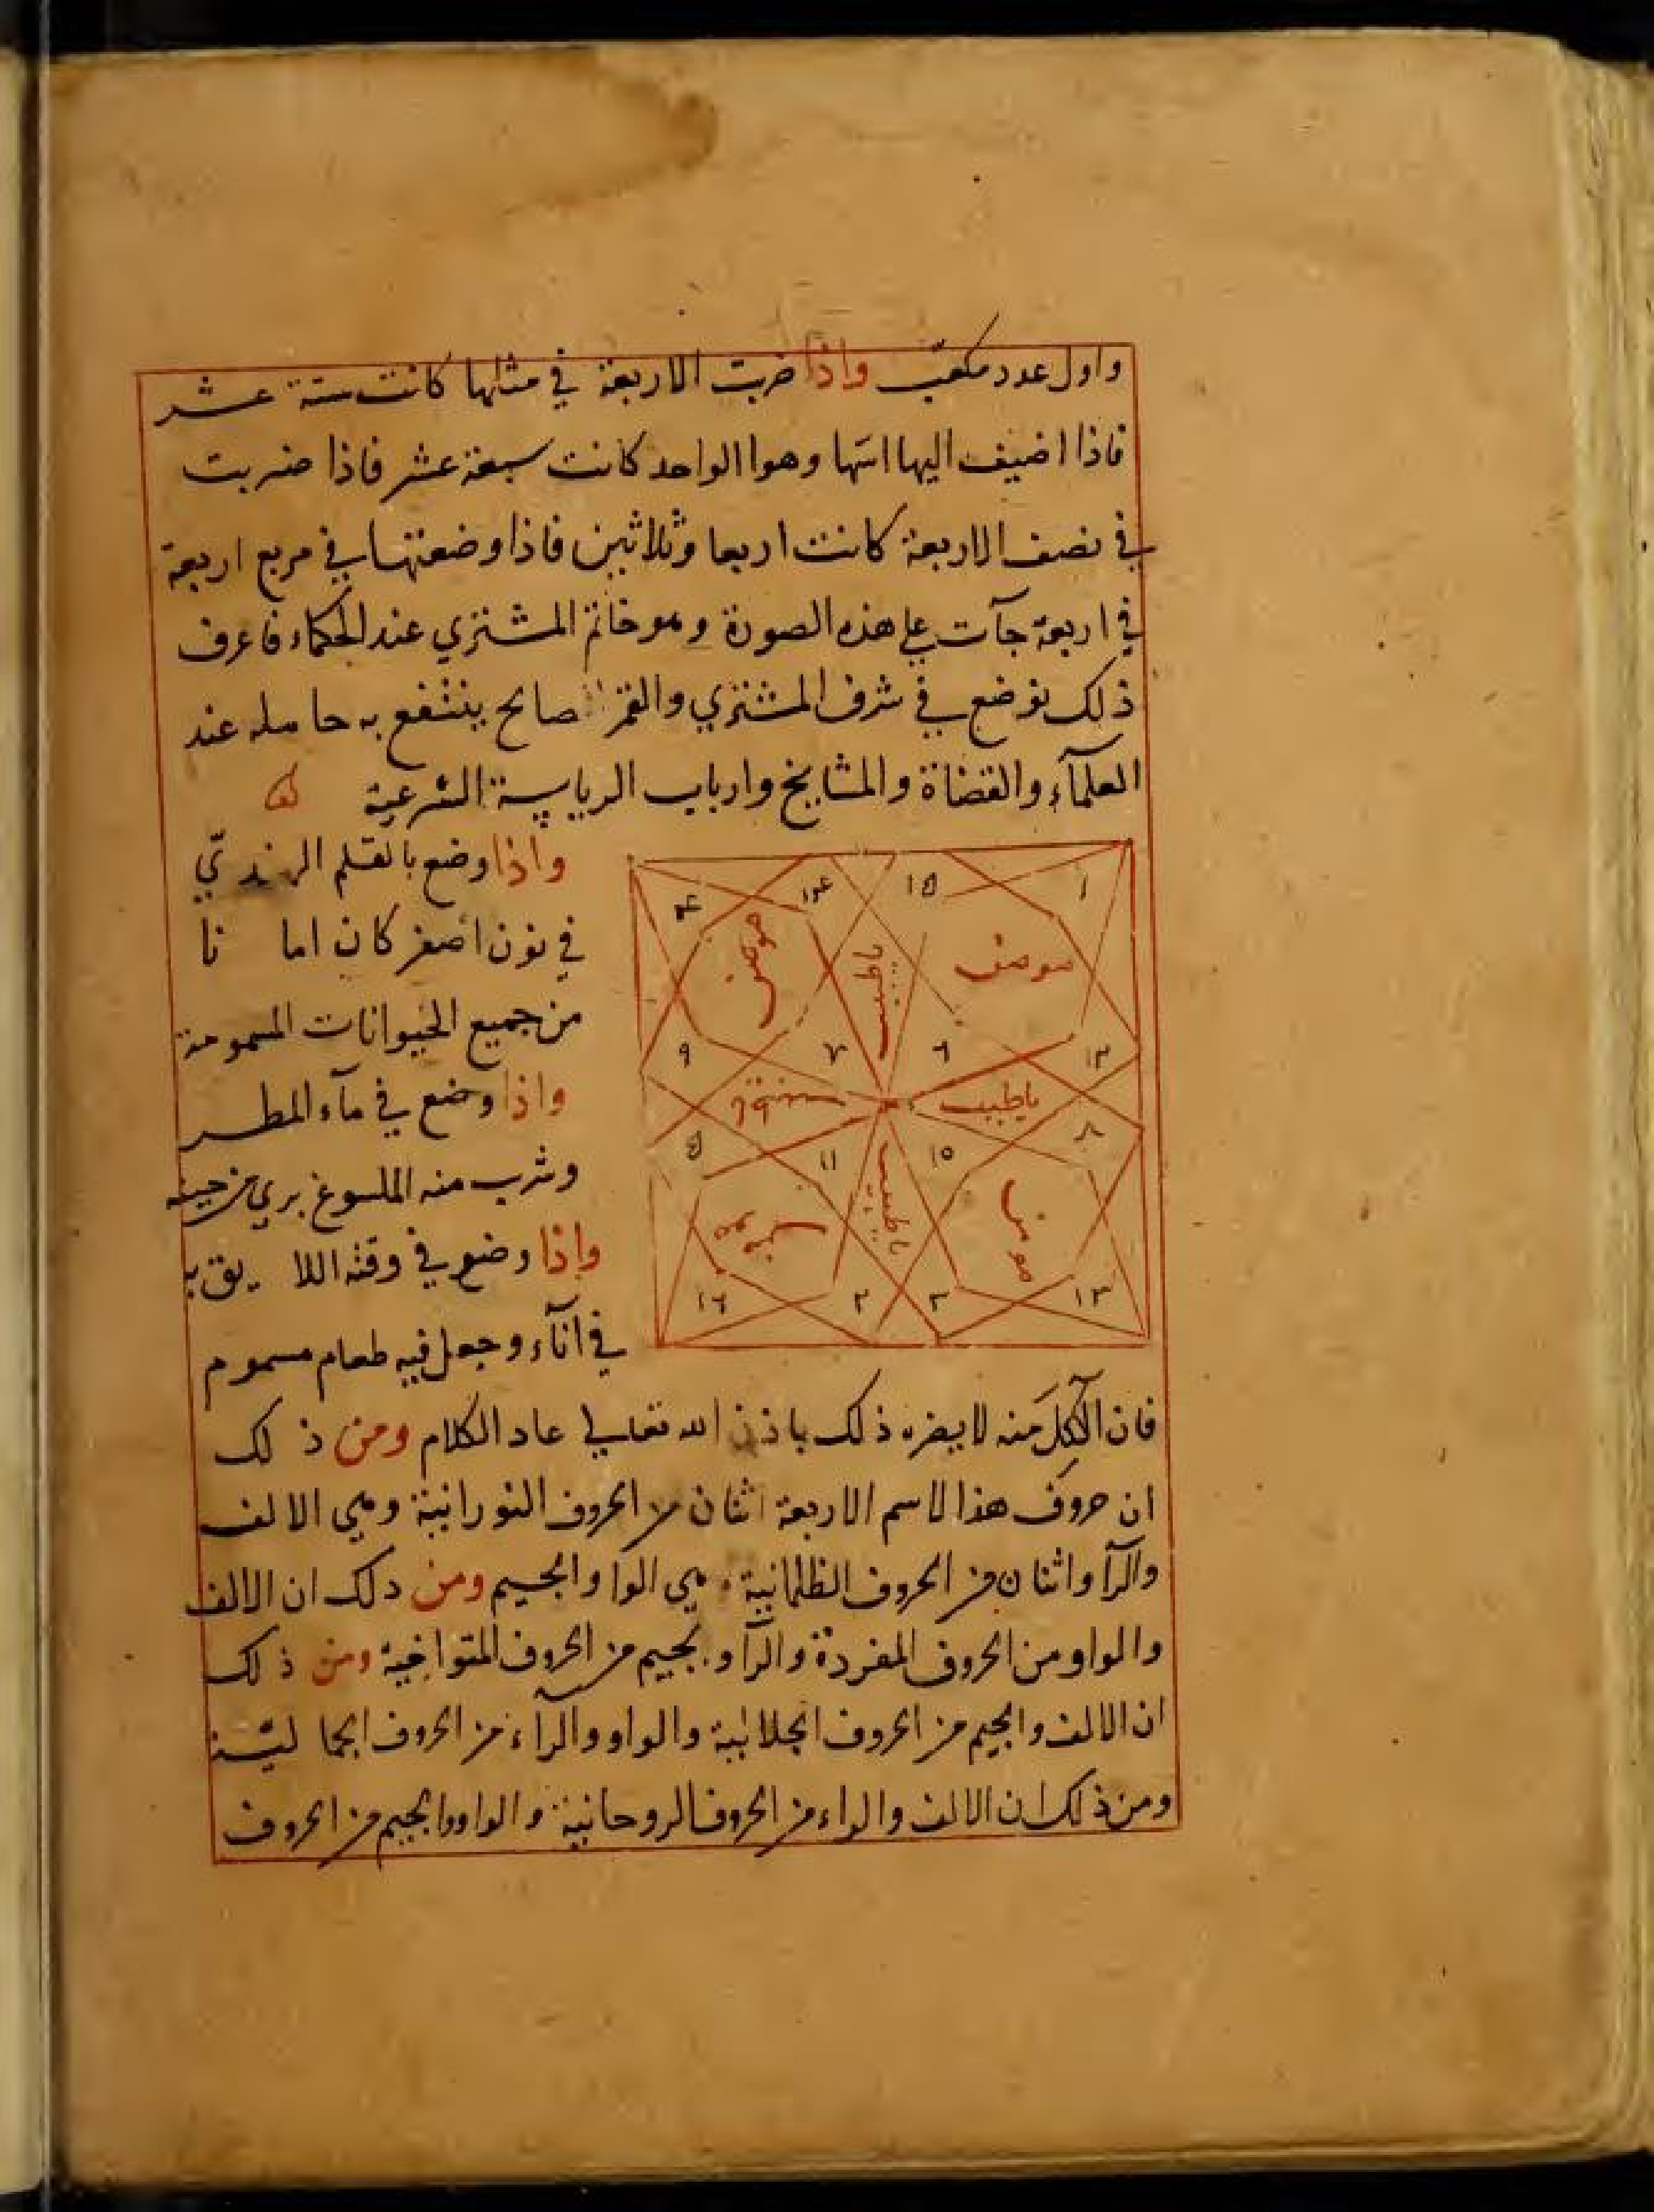 واول عدد مكعب واذا ضربت الاربعة في مثلها كانت ستة عشر
فاذا اضيف اليها اسّها وهوا الواحد كانت سبعة عشر فاذا ضربت
في نصف الاربعة كانت اربعا وثلاثين فاذا وضعتها في مربع اربعة
في اربعة جآت على هذه الصورة وهو خاتم المشتري عند الحكماء فاعرف
ذلك توضع في شرف المشتري والقمر صالح ينتفع به حامله عند
العلمآء والقضاة والمشايخ وارباب الرياسة الشرعية
واذا وضع بالقلم الهنديّ
في نون اصفر كان اما نا
من جميع الحيوانات المسمومة
واذا وضع في مآء المطر
وشرب منه الملسوع بري من حينه
واذا وضع في وقته اللا يق به
في انآء وجعل فيه طعام مسموم
٤ ١٤ ١٥ ١
٩ ٧ ٦ ١٢
ياطبيب
٥ ١١ ١٥ ٨
ياطبيب
١٦ ٢ ٣ ١٣
فان الآكل منه لا يضره ذلك باذن الله تعالى عاد الكلام ومن ذ لك
ان حروف هذا الاسم الاربعة اثنان من الحروف النورانية وهي الالف
والرآ واثنان من الحروف الظلمانية وهي الوا والجيم ومن دلك ان الالف
والواو من الحروف المفردة والرآ والجيم من الحروف المتواخية ومن ذ لك
ان الالف والجيم من الحروف الجلالية والواو والرآء من الحروف الجما ليّة
ومن ذلك ان الالف والراء من الحروف الروحانية والواو والجيم من الحروف